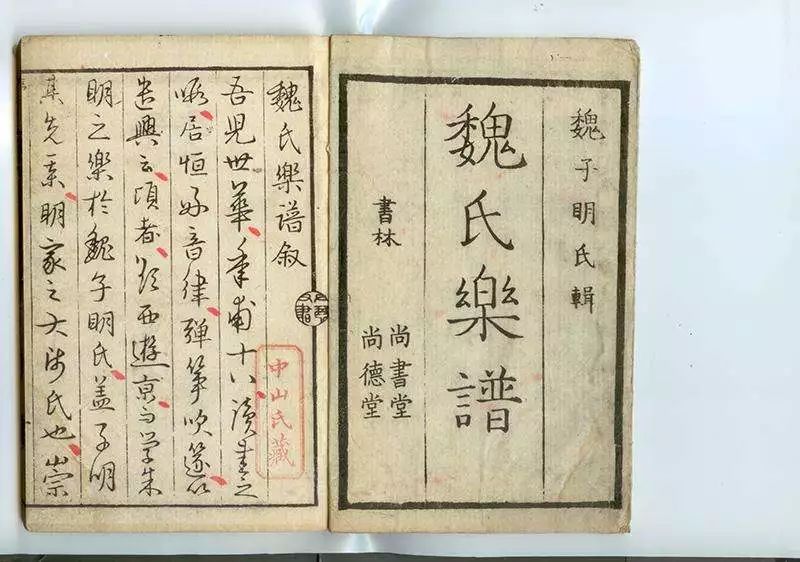 魏子明氏輯
魏氏樂譜
書林
尚書堂
尚德堂
魏氏樂譜叙
吾兄世華年甫十八讀書之
暇居恒好音律彈箏吹篴以
遣興云頃者西遊京与学朱
明之樂於魏子明氏蓋子明
其先系明家之大師氏也崇
中山氏藏